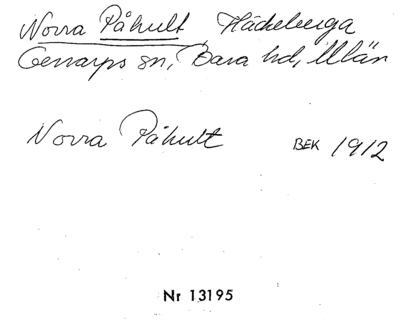 Norra Påhult, Häckeberga
Genarps sn, Bara hd, M län
Norra Påhult BEK 1912
Nr 13195